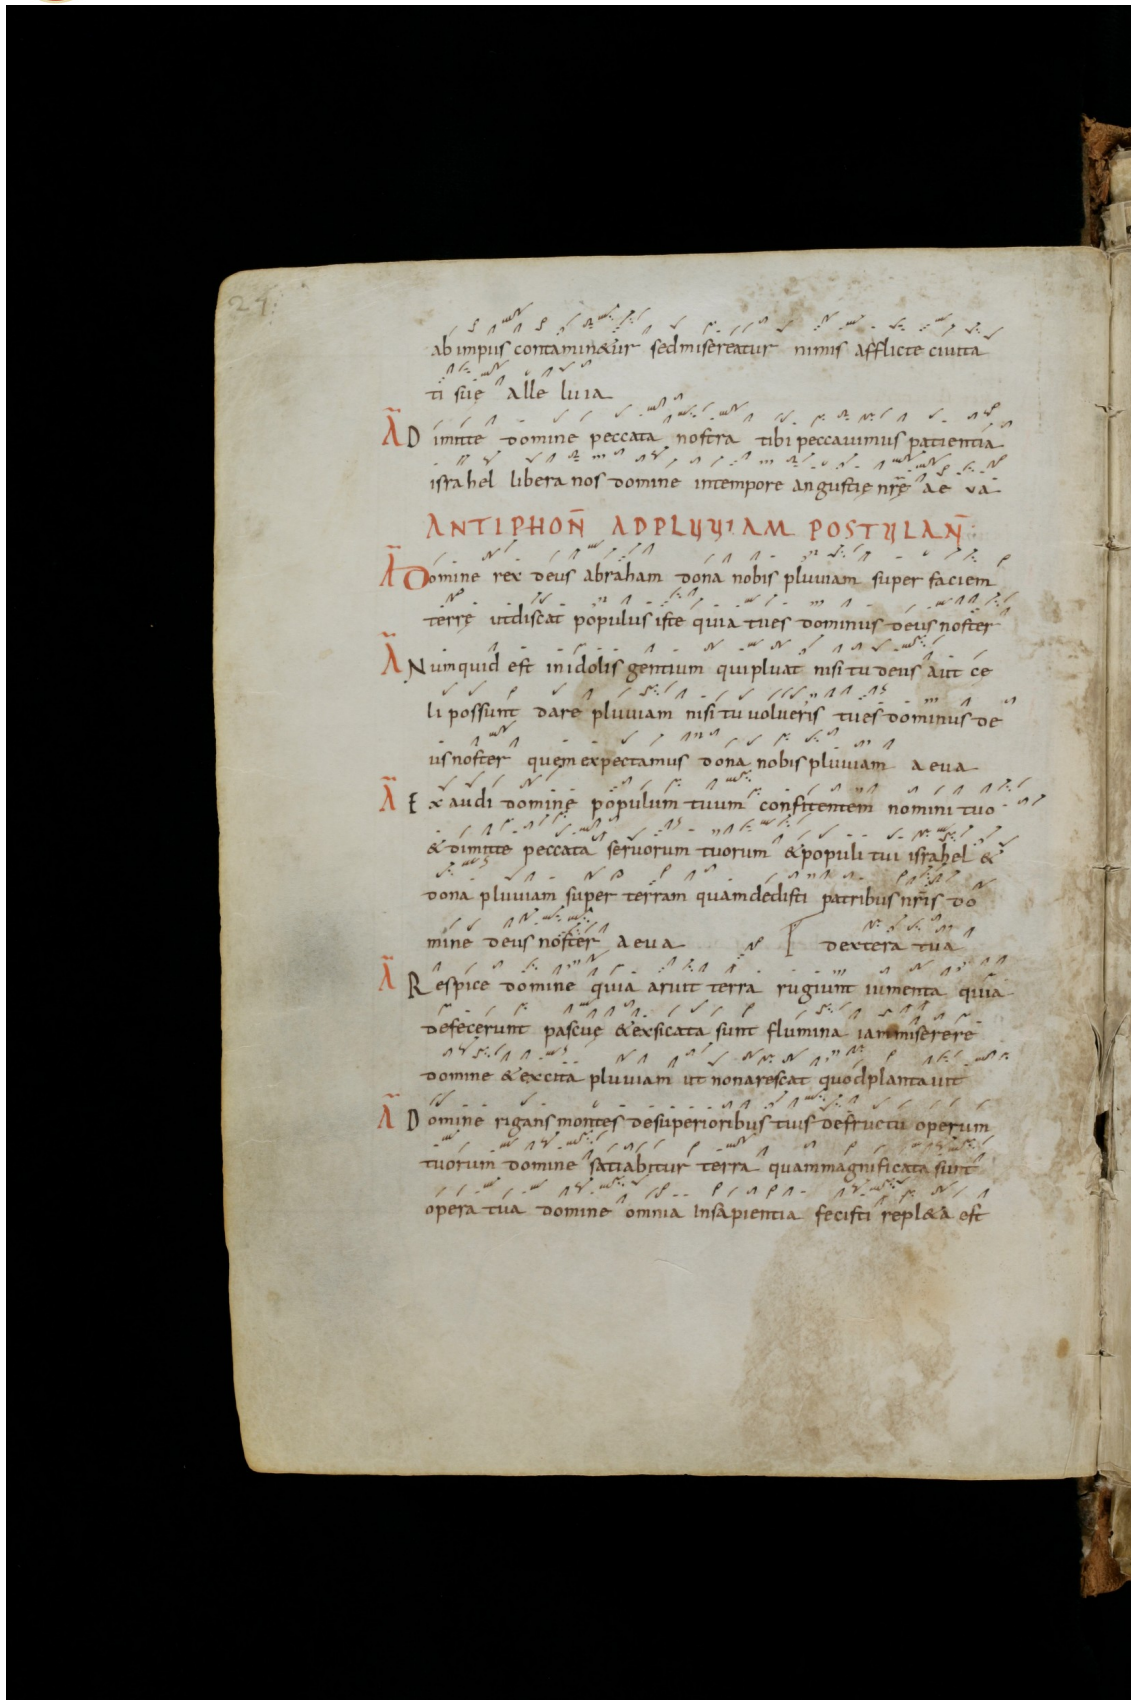 24.
ab impiis contamin&ur sedmisereatur nimis afflicte ciuita
ti suę alle luia
A Dimitte domine peccata nostra tibi peccauimus patientia
israhel libera nos domine intempore angustię nrę ae va
ANTIPHON̄ ADPLUUIAM POSTULAN̄
A Domine rex deus abraham dona nobis pluuiam super faciem
terrę utdiscat populus iste quia tues dominus deus noster
A Numquid est inidolis gentium quipluat nisi tu deus aut ce
li possunt dare pluuiam nisi tu uolueris tues dominus de
us noster quem expectamus dona nobis pluuiam aeua
A Exaudi domine populum tuum confitentem nomini tuo
& dimitte peccata seruorum tuorum & populi tui israhel &
dona pluuiam super terram quamdedisti patribus nr̄is do
mine deus noster aeua dextera tua
A Respice domine quia aruit terra rugiunt iumenta quia
defecerunt pascuę & exsicata sunt flumina iammiserere
domine & excita pluuiam ut nonarescat quodplantauit
A Domine rigans montes desuperioribus tuis defructu operum
tuorum domine satiabitur terra quammagnificata sunt
opera tua domine omnia Insapientia fecisti repl&a est